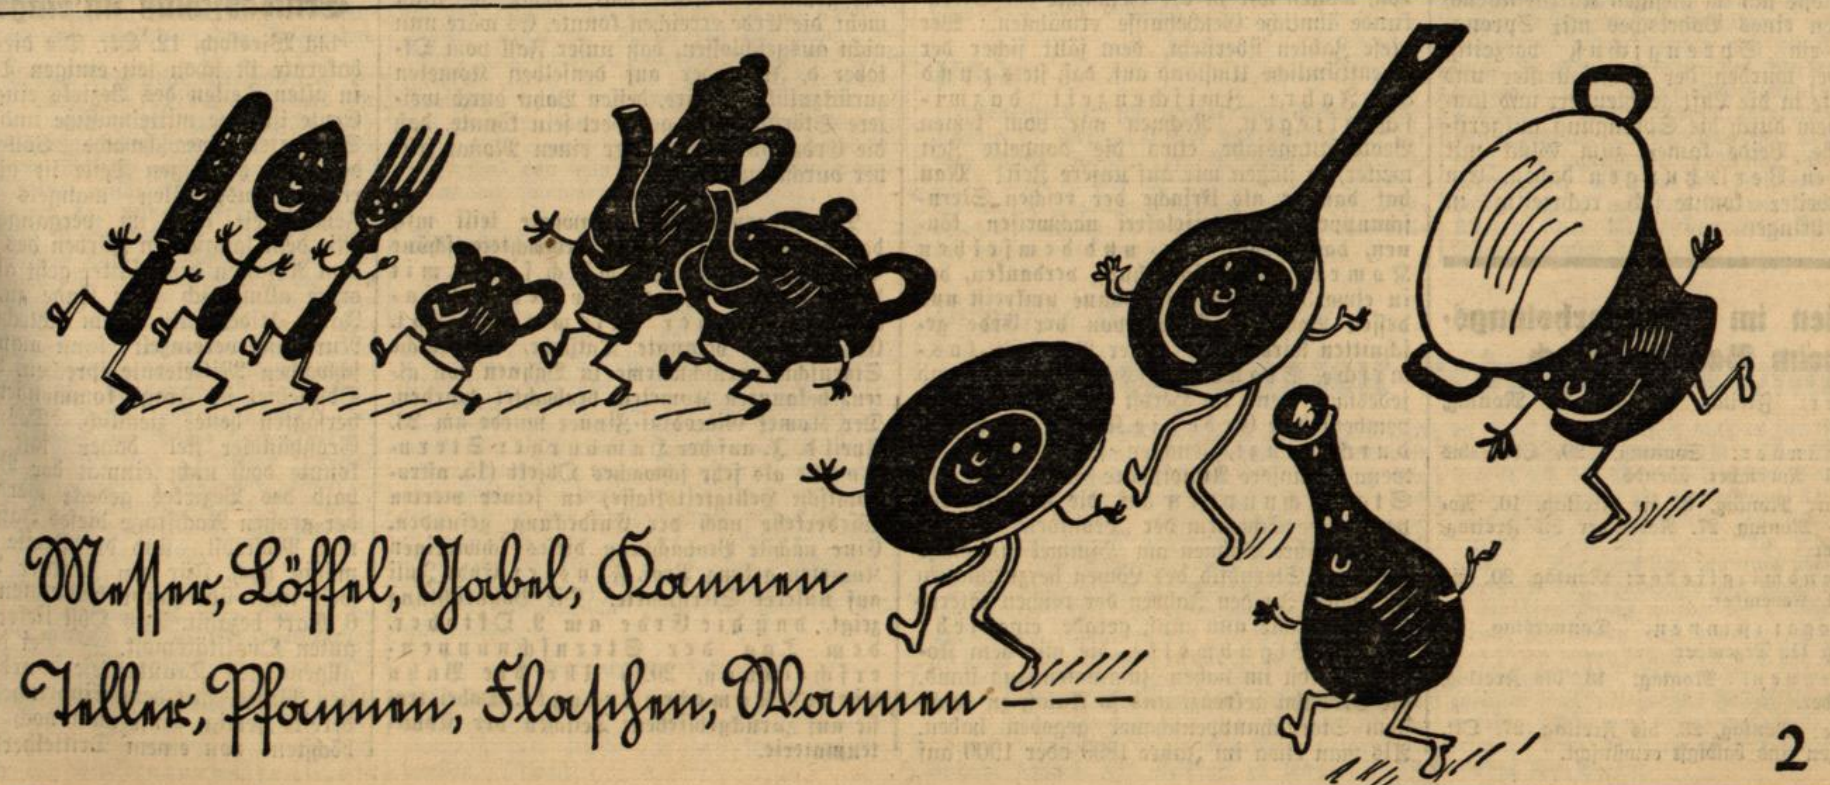 Messer, Löffel, Gabel, Kannen
Teller, Pfannen, Flaschen, Wannen — —
2